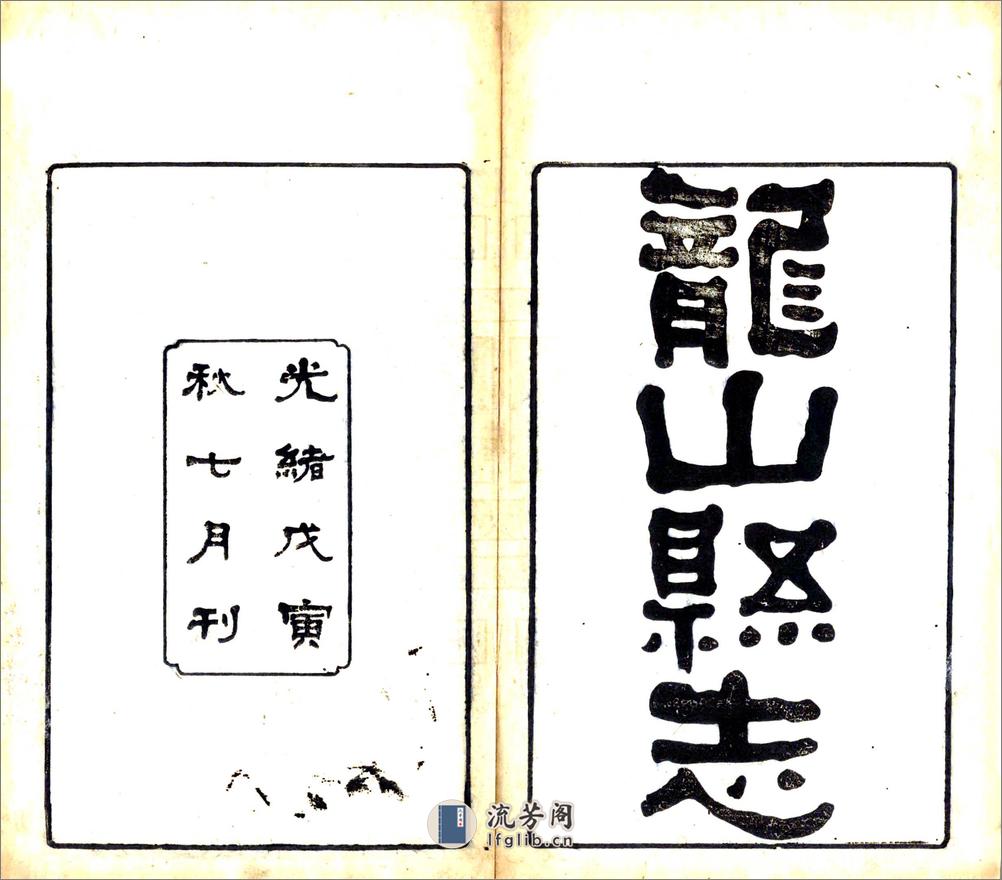 龍山縣志
光緒戊寅
秋七月刊
流芳阁
lfglib.cn